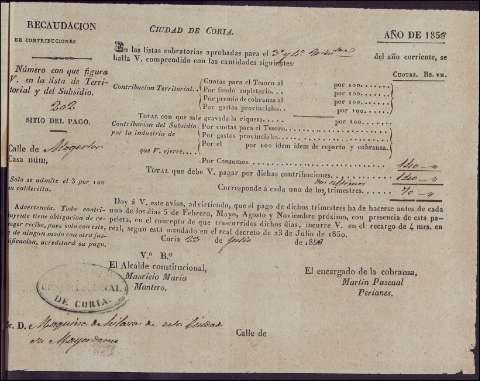 RECAUDACION
DE CONTRIBUCIONES
Número con que figura
V. en la lista de Terri-
torial y del Subsidio.
202
SITIO DEL PAGO.
Calle de
Casa núm.
Solo se admite el 3 por 100
en calderilla.
Advertencia. Todo contri-
buyente tiene obligacion de re-
coger recibo, pues solo con este,
y de ningun modo con otra jus-
tificacion, acreditará su pago.
CIUDAD DE CORIA.
AÑO DE 1856
En las listas cobratorias aprobadas para el 3º y 4º del año corriente, se
halla V. comprendido con las cantidades siguientes:
CUOTAS. Rs. vn.
Contribucion Territorial.
Cuotas para el Tesoro al por 100
Por fondo supletorio por 100
Por premio de cobranza al por 100
Por gastos provinciales por 100
TOTAL con que sale gravada la riqueza por 100
Contribucion del Subsidio
por la industria de
que V. ejerce.
Por cuotas para el Tesoro
Por gastos provinciales
Por el por 100 idem idem de reparto y cobranza
Por Consumos 140
TOTAL que debe V. pagar por dichas contribuciones 140
Corresponde á cada uno de los trimestres 70
Doy á V. este aviso, advirtiendo, que el pago de dichos trimestres ha de hacerse antes de cada
uno de los dias 5 de Febrero, Mayo, Agosto y Noviembre próximo, con presencia de esta pa-
peleta, en el concepto de que trascurridos dichos dias, incurre V. en el recargo de 4 mrs. en
real, segun está mandado en el real decreto de 23 de Julio de 1850.
Coria 23 de Julio de 1856
V.º B.º
El Alcalde constitucional,
Mauricio María
Montero.
El encargado de la cobranza,
Martin Pascual
Perianes.
DE CORIA.
Sr. D. de esta Ciudad
Calle de
su Mayordomo